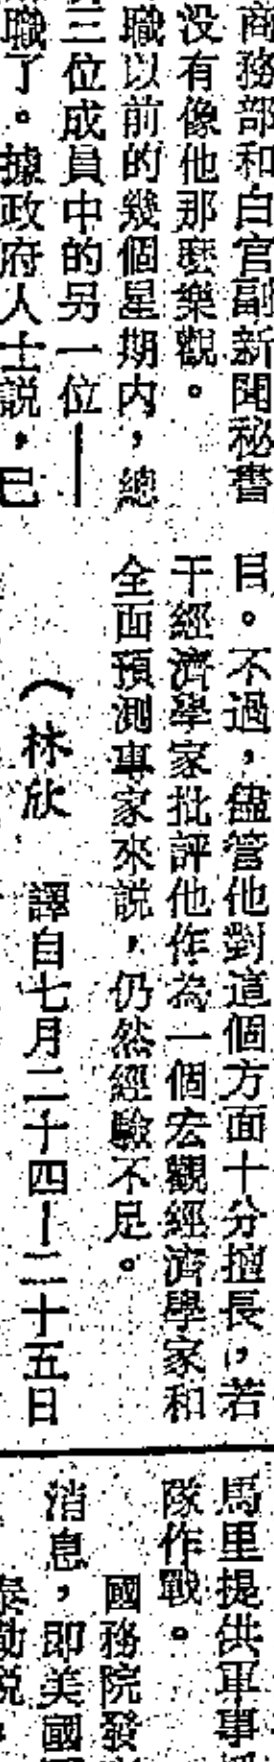 商務部和白宮副新聞秘書
没有像他那麽樂觀。
職以前的幾個星期内，總
三位成員中的另一位——
職了。據政府人士説，已
目。不過，儘管他對這個方面十分擅長，若
干經濟學家批評他作為一個宏觀經濟學家和
全面預測專家來説，仍然經驗不足。
（林欣 譯自七月二十四—二十五日
馬里提供軍事
隊作戰。
國務院發
消息，即美國
泰勒説，